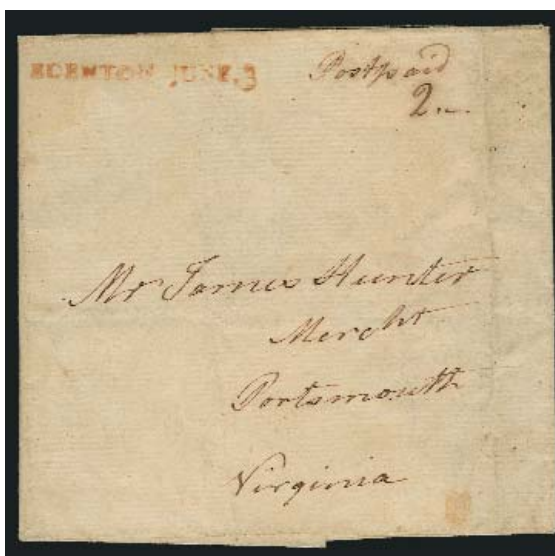 EDENTON JUNE.3
Postpaid
2.~
Mr James Hunter
Mercht
Portsmouth
Virginia